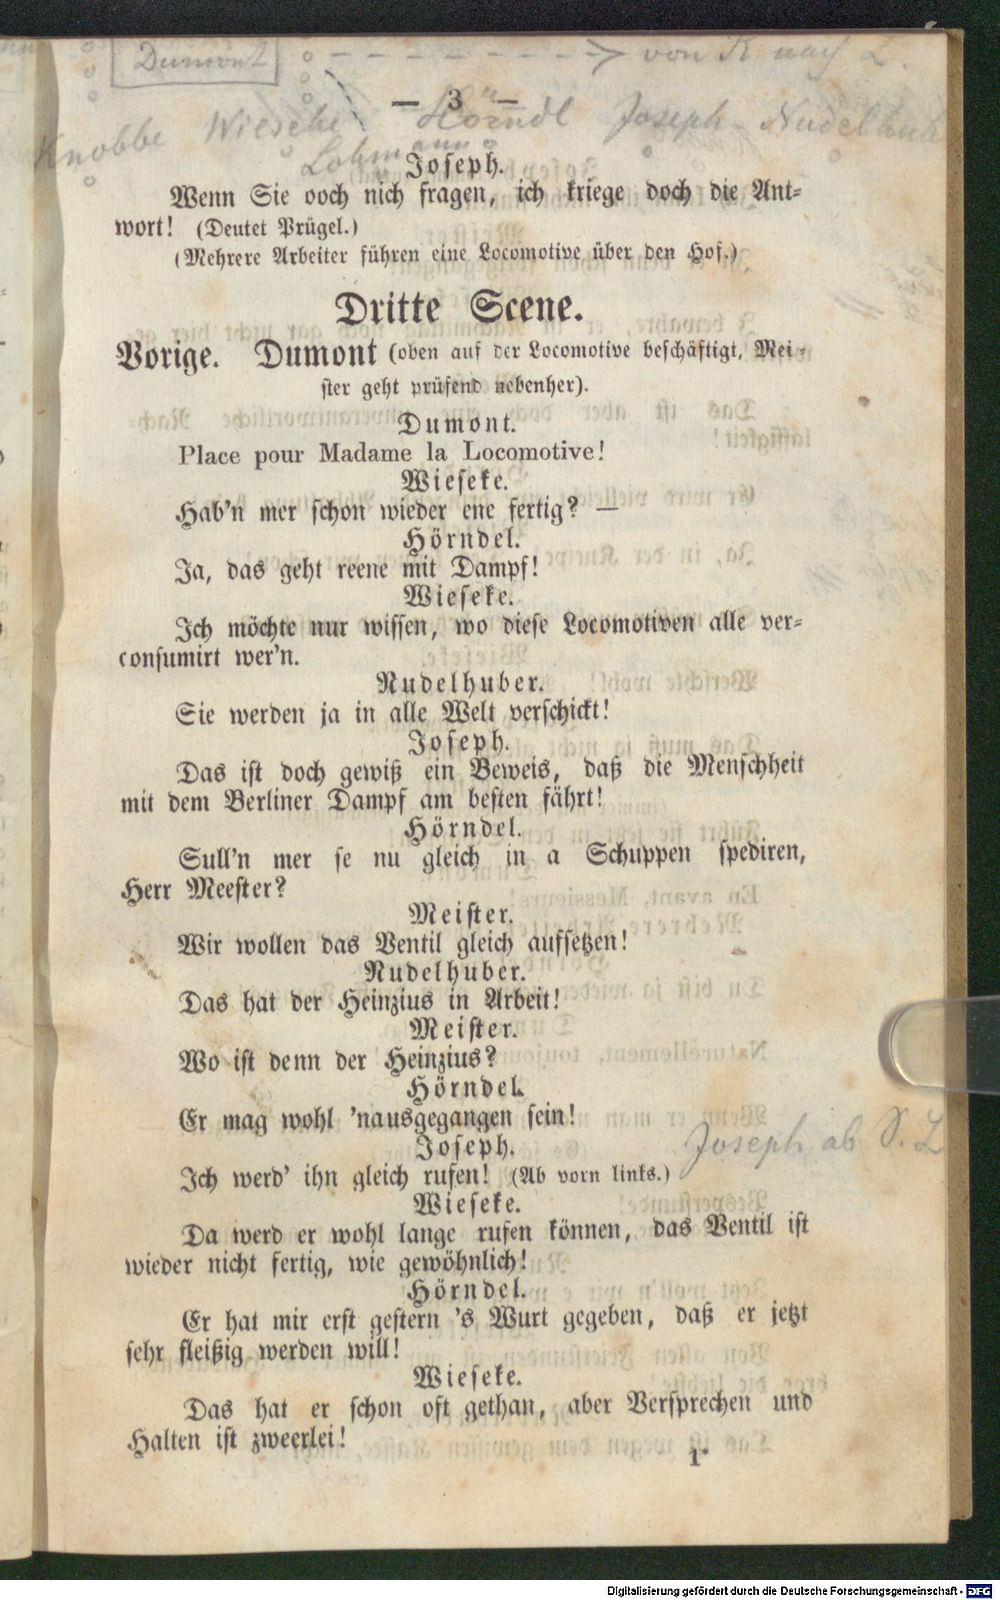 Dumont
von R nach L.
— 3 —
Knobbe Wieseke Hörndl Joseph Nudelhub
Lohmann
Joseph.
Wenn Sie ooch nich fragen, ich kriege doch die Ant-
wort! (Deutet Prügel.)
(Mehrere Arbeiter führen eine Locomotive über den Hof.)
Dritte Scene.
Vorige. Dumont (oben auf der Locomotive beschäftigt, Mei-
ster geht prüfend nebenher).
Dumont.
Place pour Madame la Locomotive!
Wieseke.
Hab'n mer schon wieder ene fertig? —
Hörndel.
Ja, das geht reene mit Dampf!
Wieseke.
Ich möchte nur wissen, wo diese Locomotiven alle ver-
consumirt wer'n.
Nudelhuber.
Sie werden ja in alle Welt verschickt!
Joseph.
Das ist doch gewiß ein Beweis, daß die Menschheit
mit dem Berliner Dampf am besten fährt!
Hörndel.
Sull'n mer se nu gleich in a Schuppen spediren,
Herr Meester?
Meister.
Wir wollen das Ventil gleich aufsetzen!
Nudelhuber.
Das hat der Heinzius in Arbeit!
Meister.
Wo ist denn der Heinzius?
Hörndel.
Er mag wohl 'nausgegangen sein!
Joseph.
Joseph ab S. L
Ich werd' ihn gleich rufen! (Ab vorn links.)
Wieseke.
Da werd er wohl lange rufen können, das Ventil ist
wieder nicht fertig, wie gewöhnlich!
Hörndel.
Er hat mir erst gestern 's Wurt gegeben, daß er jetzt
sehr fleißig werden will!
Wieseke.
Das hat er schon oft gethan, aber Versprechen und
Halten ist zweerlei!
1*
Digitalisierung gefördert durch die Deutsche Forschungsgemeinschaft - DFG